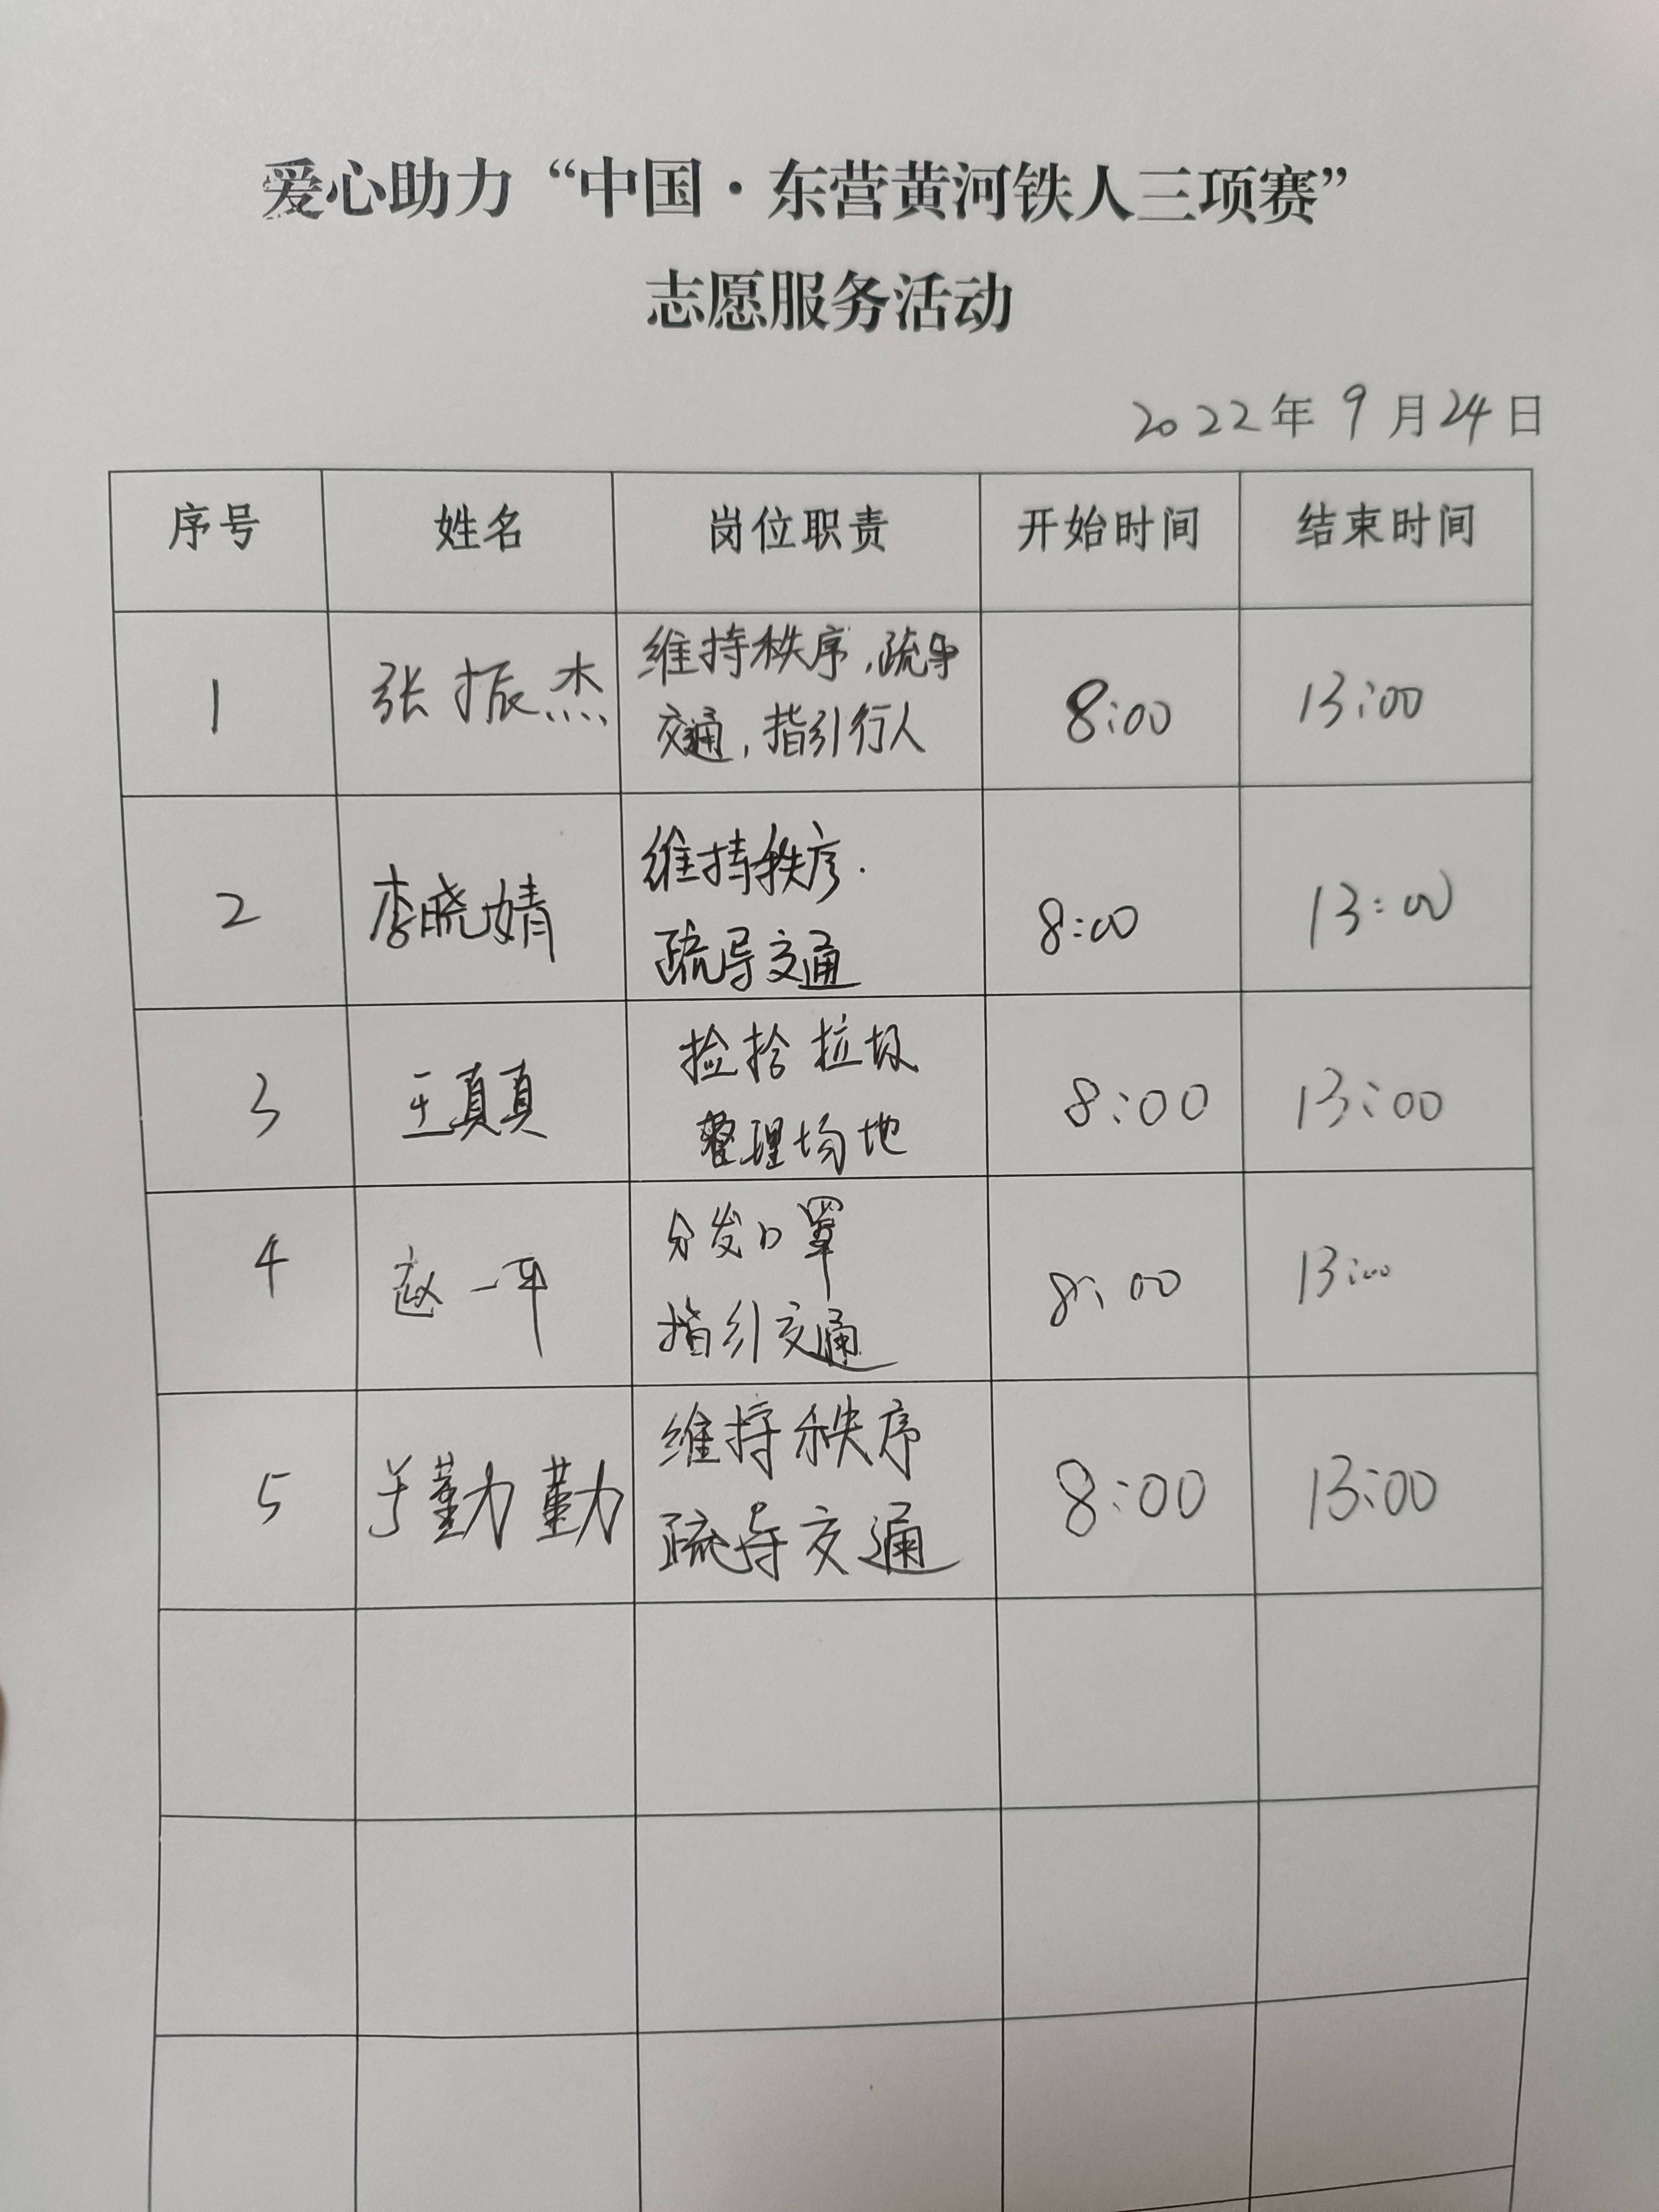 爱心助力“中国·东营黄河铁人三项赛”
志愿服务活动
2022年9月24日
序号 姓名 岗位职责 开始时间 结束时间
1 张振杰 维持秩序,疏导 8:00 13:00
交通,指引行人
2 李晓婧 维持秩序. 8:00 13:00
疏导交通
3 王真真 捡拾垃圾 8:00 13:00
整理场地
4 赵一平 分发口罩 8:00 13:00
指引交通
5 于勤勤 维持秩序 8:00 13:00
疏导交通